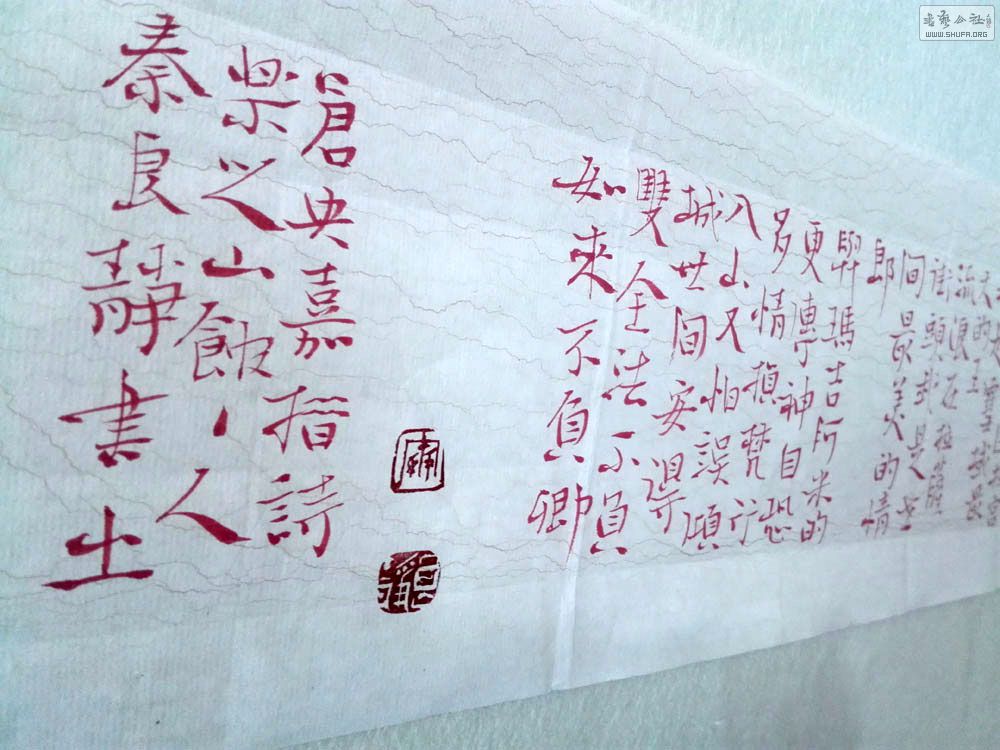 流浪在拉薩
街頭我是世
间最美的情
郎
瑪吉阿米的
更傳神自恐
多情損梵行
入山又怕誤傾
城世间安得
雙全法不負
如來不負卿
倉央嘉措詩
樂之山人
秦良靜書
書藝公社
WWW.SHUFA.ORG